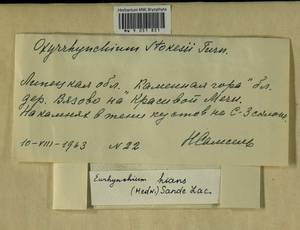 Herbarium MW, Bryophyta
Oxyrrhynchium Stokesii Turn.
Липецкая обл. "Каменная гора" бл.
дер. Вязово на Красивой Мечи.
На камнях в тени кустов на С-З склоне.
10-VIII-1963 N 22
Eurhynchium hians
(Hedw.) Sande Lac.